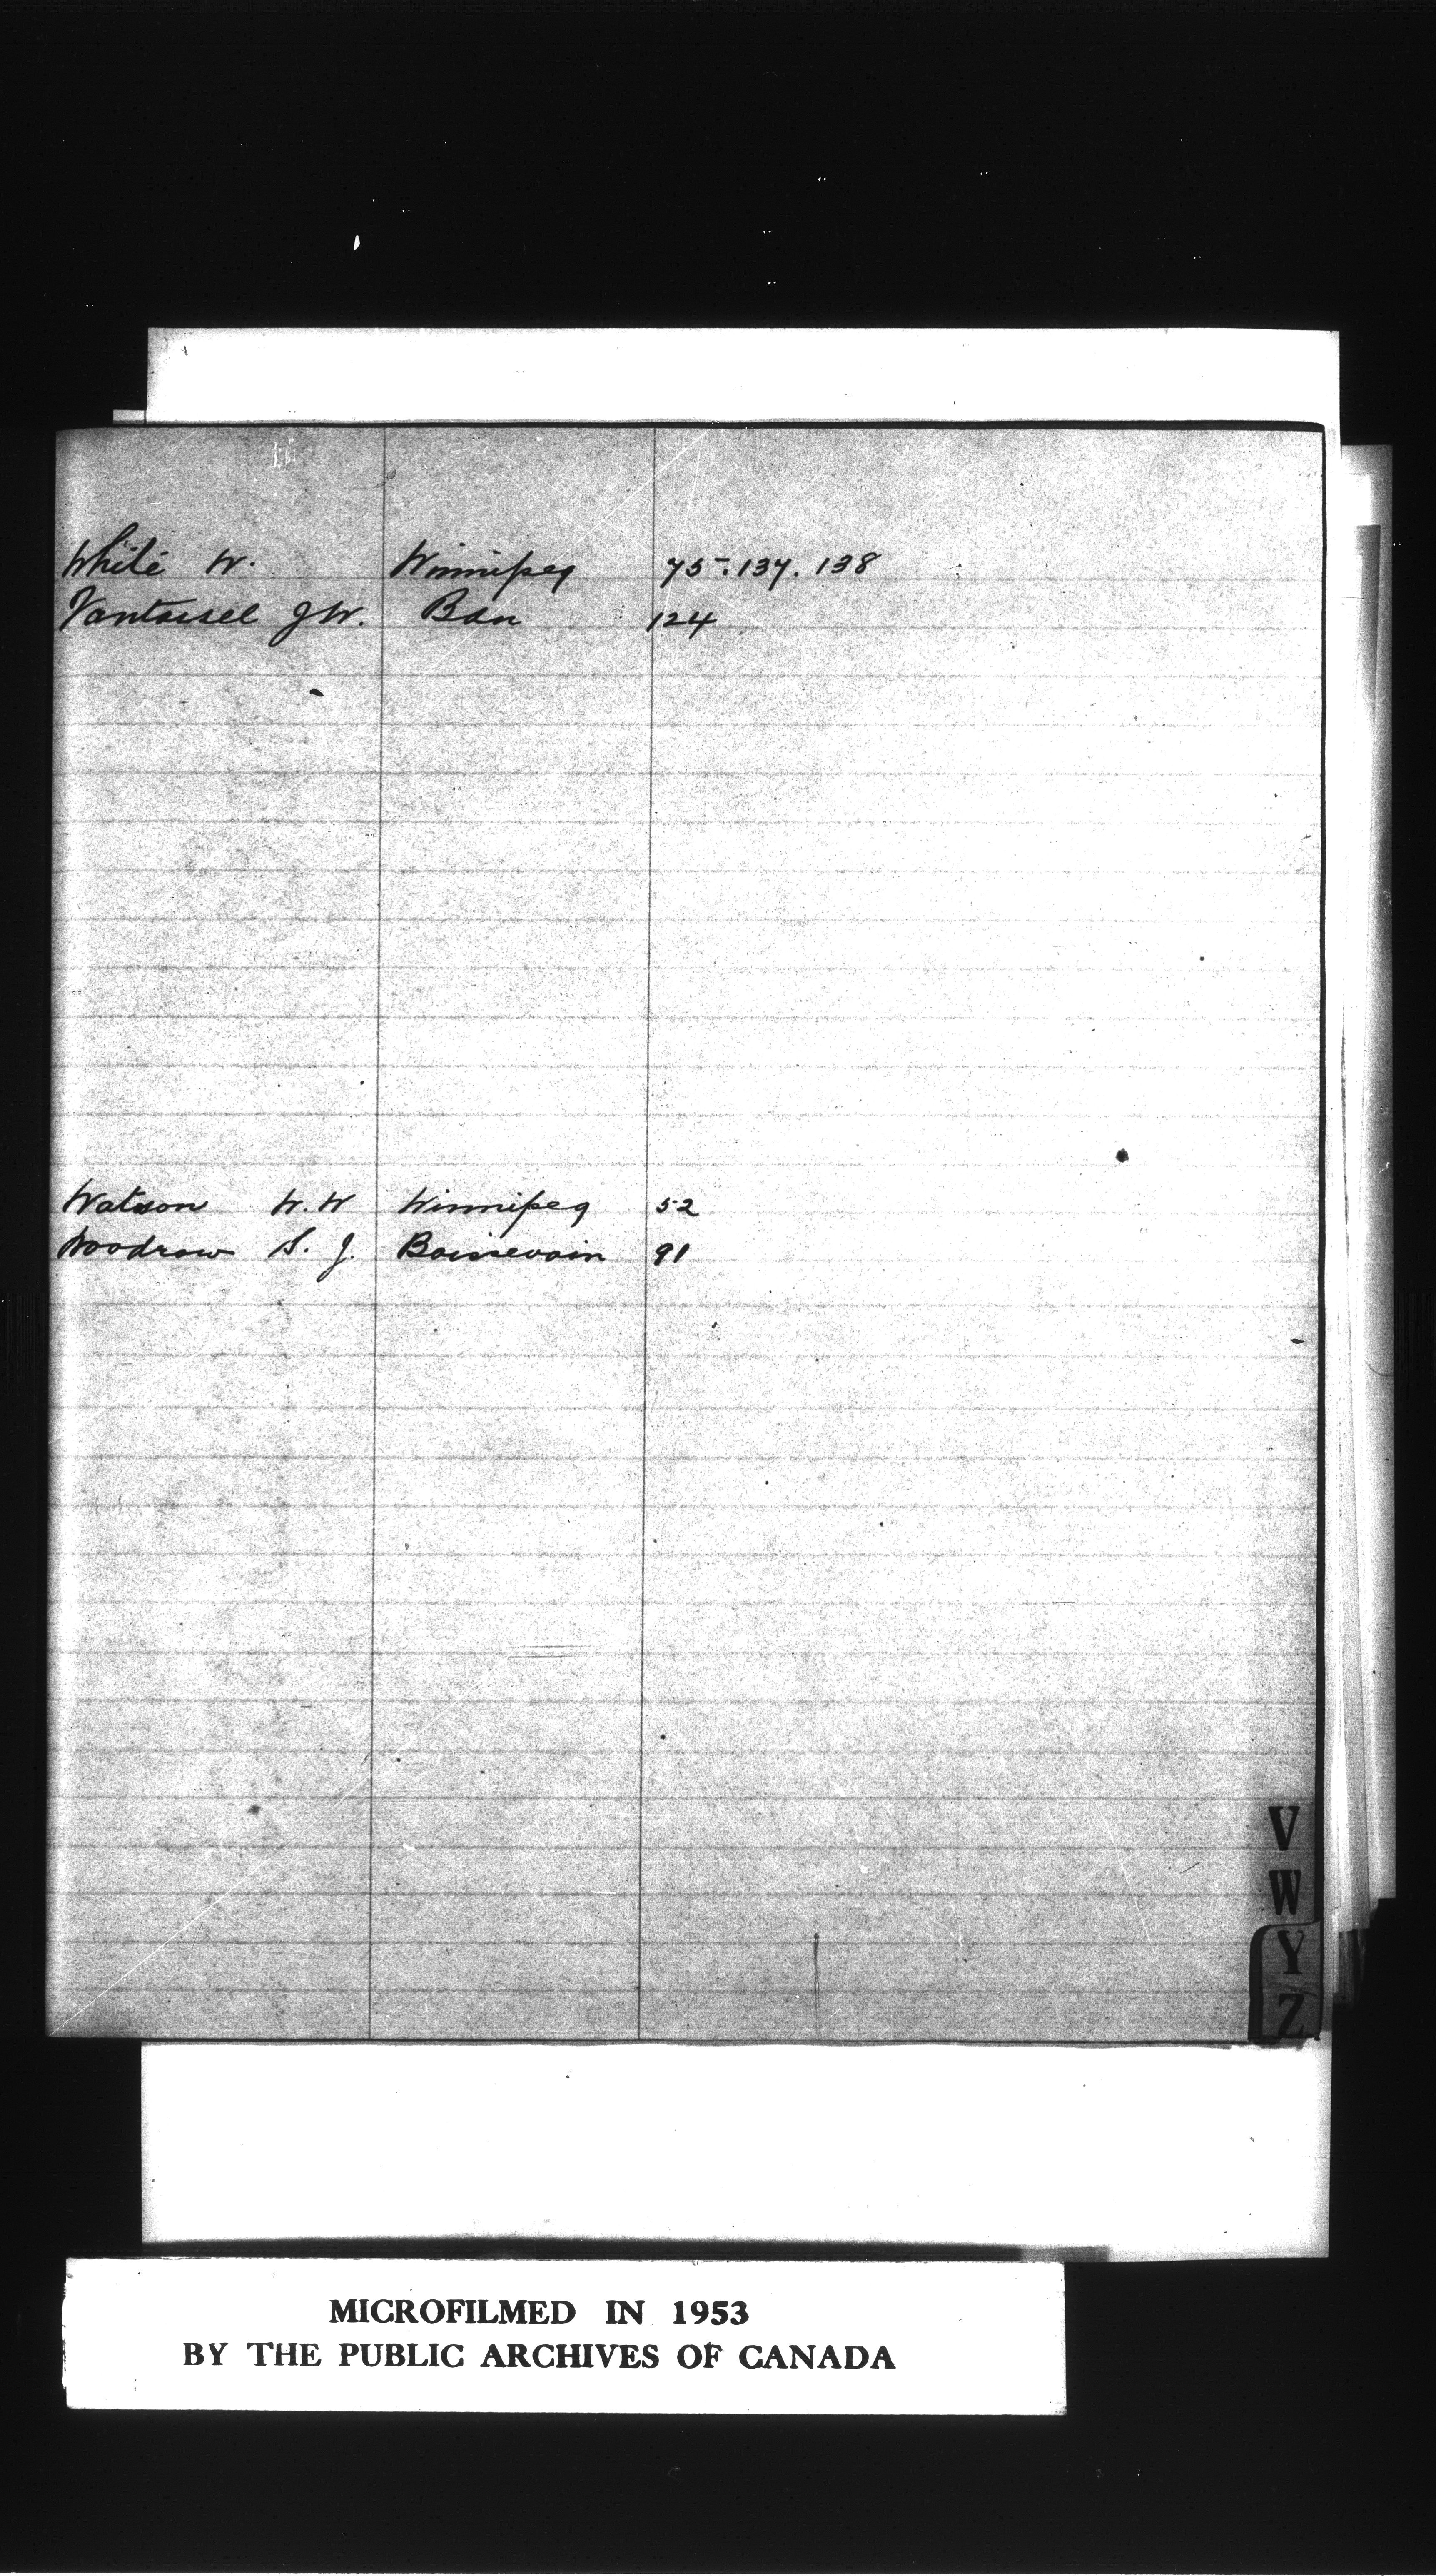 White W. Winnipeg 75.137.138
Vantassel J W. Ban 124
Watson W. W Winnipeg 52
Woodrow S. J. Boissevain 91
V
W
Y
Z
MICROFILMED IN 1953
BY THE PUBLIC ARCHIVES OF CANADA